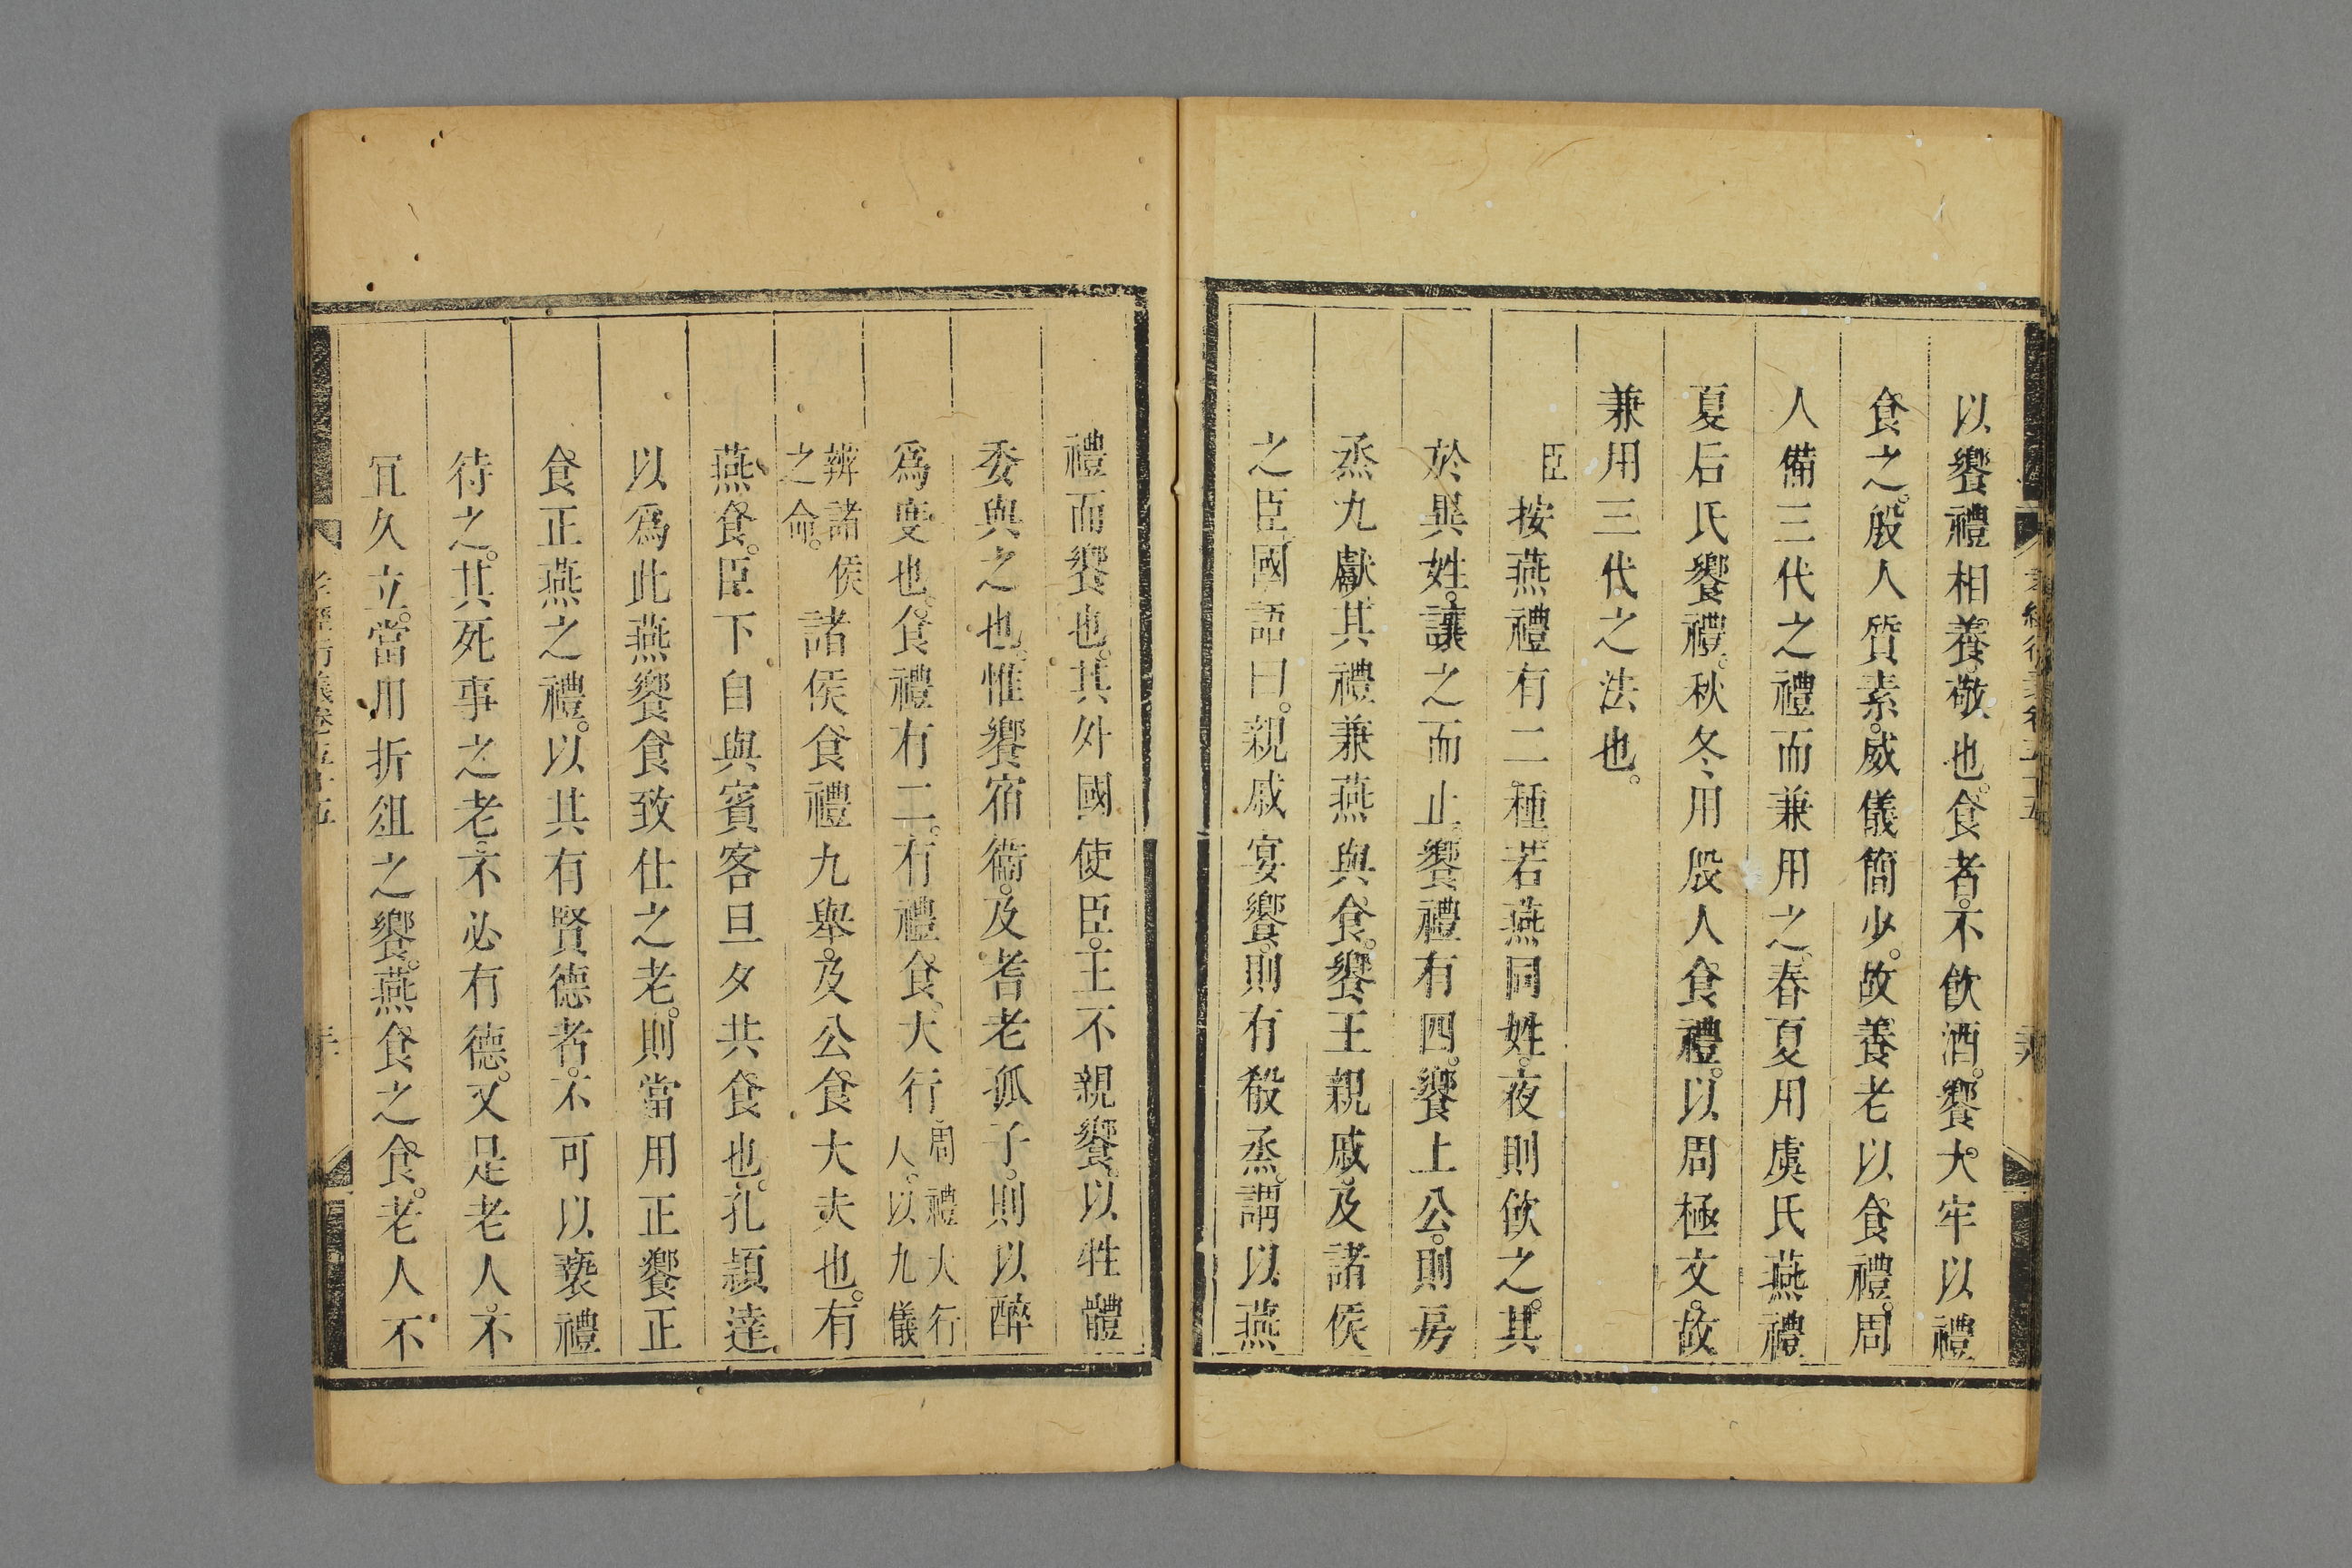 以饗禮相養敬也。食者。不飲酒。饗大。牢以禮
食之。殷人質素。威儀簡少。故養老以食禮。周
人備三代之禮而兼用之、春夏用虞氏燕禮
夏后氏饗禮。秋冬用殷人食禮。以周極文。故
兼用三代之法也。
臣按燕禮有二種。若燕同姓。夜則飲之。其
於異姓。讓之而止。饗禮有四。饗上公。則房
烝九獻。其禮兼燕與食。饗王親戚。及諸侯
之臣。國語曰。親戚宴饗。則有殽烝。謂以燕
禮而饗也。其外國使臣。王不親饗。以牲體
委與之也。惟饗宿衞。及耆老孤子。則以醉
爲度也。食禮有二。有禮食。大行周禮大行人。以九儀
辨諸侯之命。諸侯食禮九舉。及公食大夫也。有
燕食。臣下自與賓客旦夕共食也。孔穎達
以爲此燕饗食致仕之老。則當用正饗正
食正燕之禮。以其有賢德者。不可以褻禮
待之。其死事之老。不必有德。又是老人。不
宜久立。當用折俎之饗。燕食之食。老人不
孝經衍義卷五十五